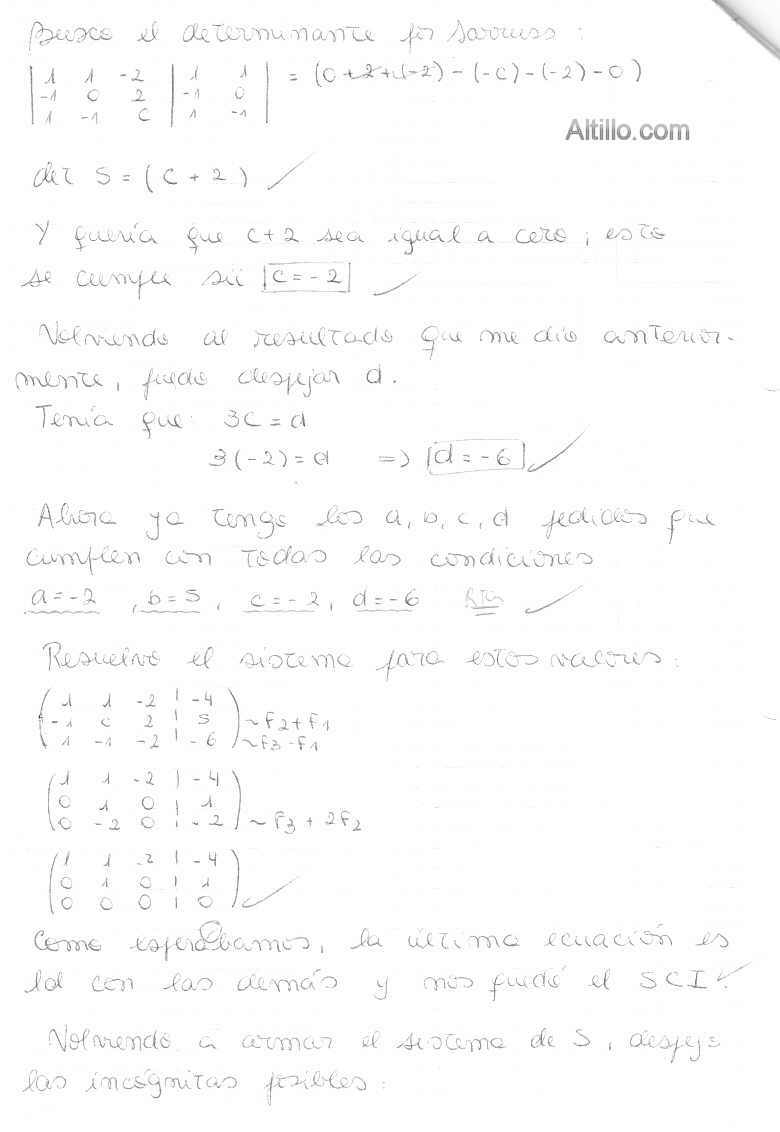 Busco el determinante por Sarruss:
| 1 1 -2 | 1 1 = (0+2+(-2) - (-c) - (-2) - 0)
| -1 0 2 | -1 0
| 1 -1 c | 1 -1
Altillo.com
det S = (c + 2) ✓
Y quería que c+2 sea igual a cero, esto
se cumple sii c = -2 ✓
Volviendo al resultado que me dio anterior-
mente, puedo despejar d.
Tenía que 3c = d
3(-2) = d => d = -6 ✓
Ahora ya tengo los a, b, c, d pedidos que
cumplen con todas las condiciones
a = -2, b = 5, c = -2, d = -6 ✓
Resuelvo el sistema para estos valores:
( 1 1 -2 | -4
-1 0 2 | 5 ) ~ F2 + F1
1 -1 -2 | -6 ) ~ F3 - F1
( 1 1 -2 | -4
0 1 0 | 1
0 -2 0 | -2 ) ~ F3 + 2F2
( 1 1 -2 | -4
0 1 0 | 1
0 0 0 | 0 ) ✓
Como esperábamos, la última ecuación es
ld con las demás y nos quedó el SCI ✓.
Volviendo a armar el sistema de S, despejo
las incógnitas posibles: